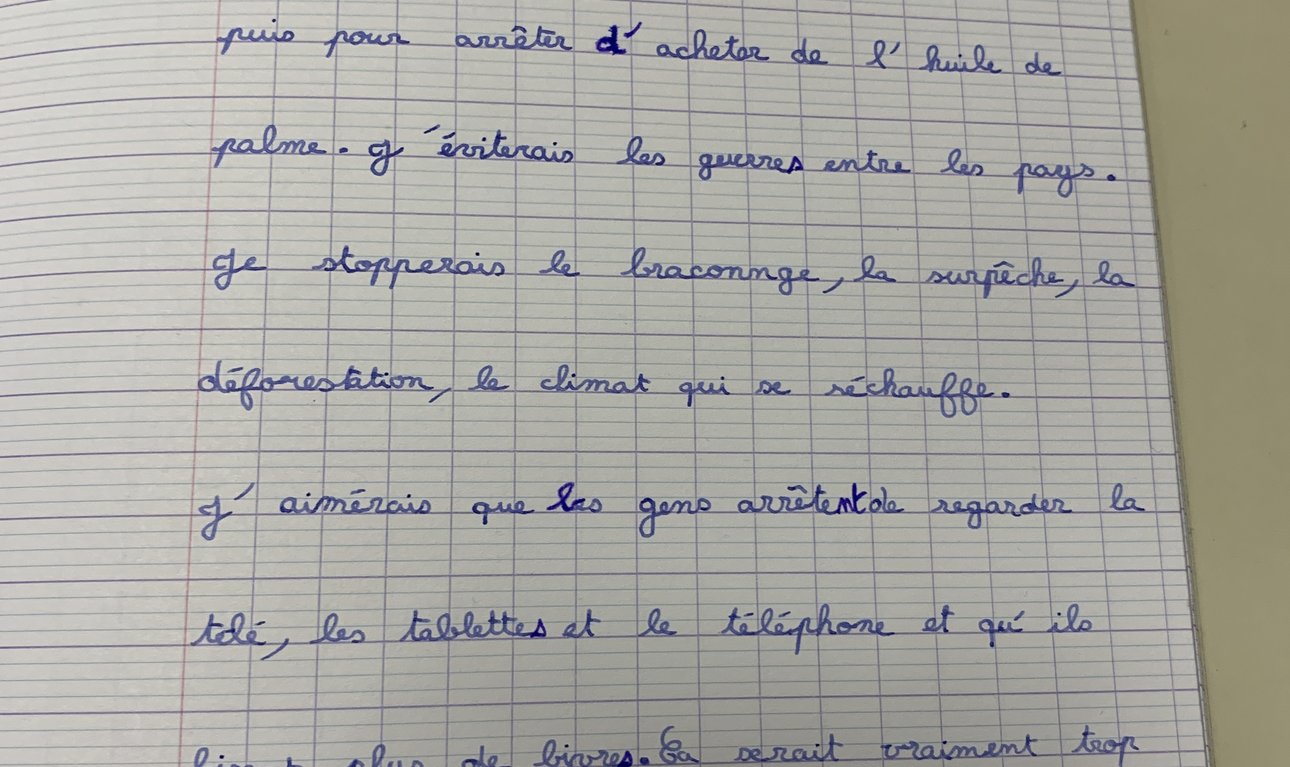 puis pour arrêter d'acheter de l'huile de
palme. J'éviterais les guerres entre les pays.
Je stopperais le braconnge, la surpêche, la
déforestation, le climat qui se réchauffe.
J'aimérais que les gens arrêtent de regarder la
télé, les tablettes et le téléphone et qu'ils
plus de livres. Ça serait vraiment trop